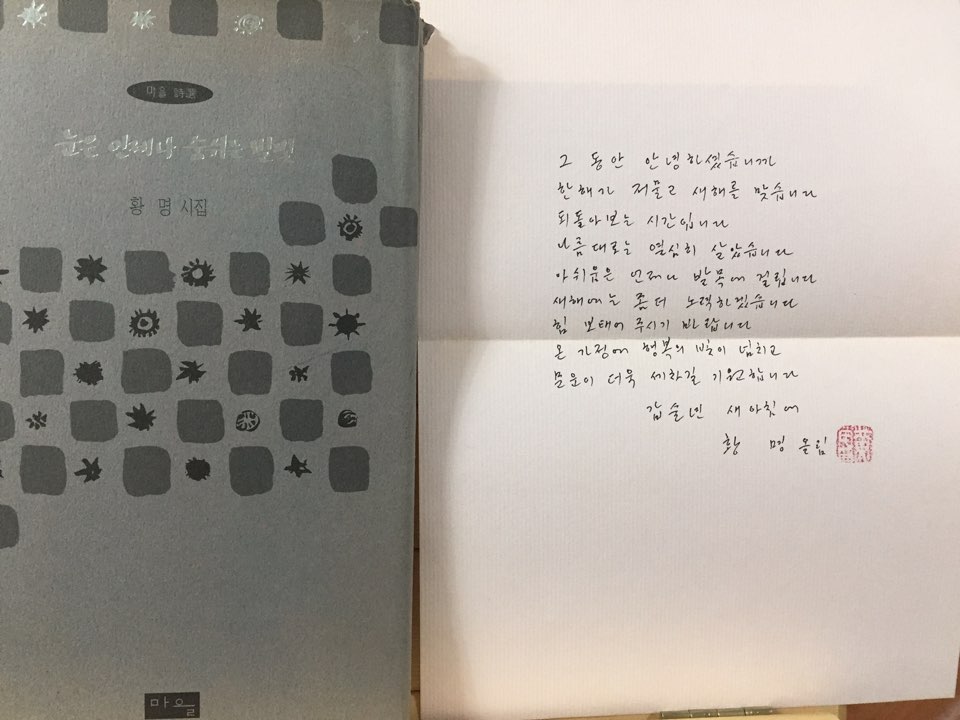 마을 詩選
눈은 언제나 숨쉬는 별빛
황 명 시집
마을
그 동안 안녕하셨습니까
한해가 저물고 새해를 맞습니다
되돌아보는 시간입니다
나름대로는 열심히 살았습니다
아쉬움은 언제나 발목에 걸립니다
새해에는 좀더 노력하겠습니다
힘 보태어 주시기 바랍니다
온 가정에 행복의 빛이 넘치고
문운이 더욱 세차길 기원합니다
갑술년 새아침에
황 명 올림